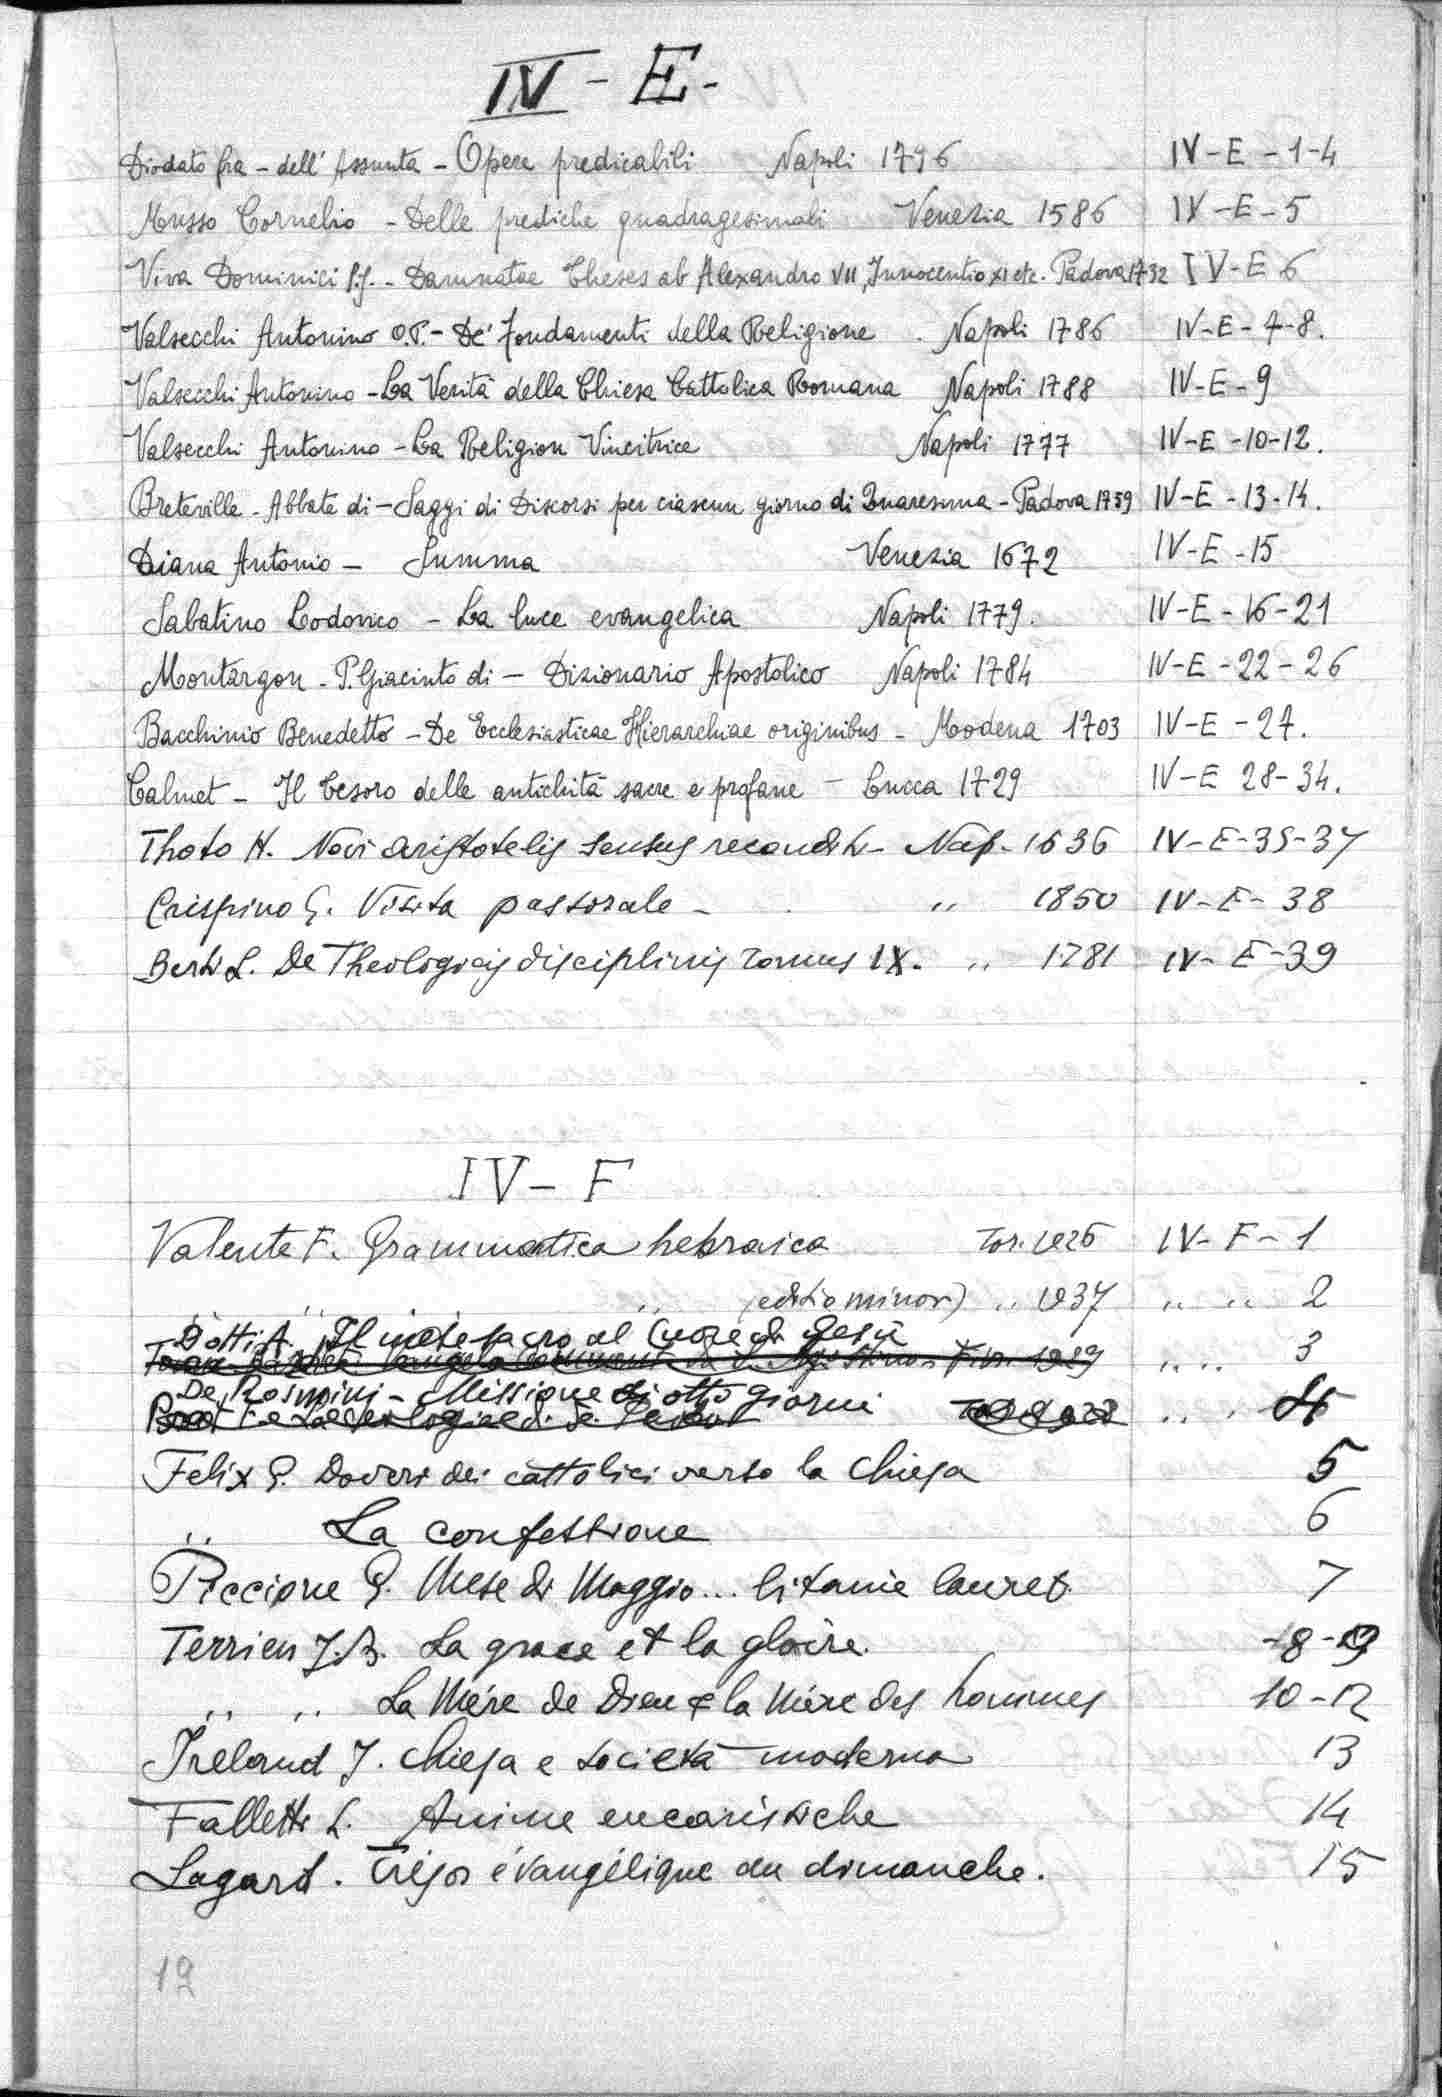 IV - E -
Diodato fra - dell' Assunta - Opere predicabili Napoli 1746 IV-E-1-4
Musso Cornelio - Delle prediche quadragesimali Venezia 1586 IV-E-5
Viva Dominici S.J. - Damnatae Theses ab Alexandro VII, Innocentio XI etc. Padova 1732 IV-E 6
Valsecchi Antonino O.P. - De' fondamenti della Religione . Napoli 1786 IV-E-7-8.
Valsecchi Antonino - La Verità della Chiesa Cattolica Romana Napoli 1788 IV-E-9
Valsecchi Antonino - La Religion Vincitrice Napoli 1777 IV-E-10-12.
Breteville - Abbate di - Saggi di Discorsi per ciascun giorno di Quaresima - Padova 1759 IV-E-13-14.
Diana Antonio - Summa Venezia 1672 IV-E-15
Sabatino Lodovico - La luce evangelica Napoli 1779. IV-E-16-21
Montargon - P. Giacinto di - Dizionario Apostolico Napoli 1784 IV-E-22-26
Bacchinio Benedetto - De Ecclesiasticae Hierarchiae originibus - Modena 1703 IV-E-27.
Calmet - Il tesoro delle antichità sacre e profane - Lucca 1729 IV-E 28-34.
Thoto H. Novi aristotelis sensus reconditi - Nap. 1636 IV-E-35-37
Crispino G. Visita pastorale - " 1850 IV-E-38
Berti L. De Theologicis disciplinis tomus IX. " 1781 IV-E-39
IV - F
Valente F. Grammatica hebraica Tor. 1926 IV-F-1
" " " (editio minor) " 1937 " " 2
Dotti A. Il mese sacro al Cuore di Gesù
Fir. 1939 " " 3
De Rosmini - Missione di otto giorni
" " 4
Felix G. Doveri dei cattolici verso la Chiesa 5
" La confessione 6
Piccione G. Mese di Maggio... litanie lauret. 7
Terrien J.B. La grace et la gloire. 8-9
" " La Mère de Dieu e la Mère des hommes 10-12
Ireland J. Chiesa e società moderna 13
Falletti L. Anime eucaristiche 14
Lagard. Trésor évangélique du dimanche. 15
19